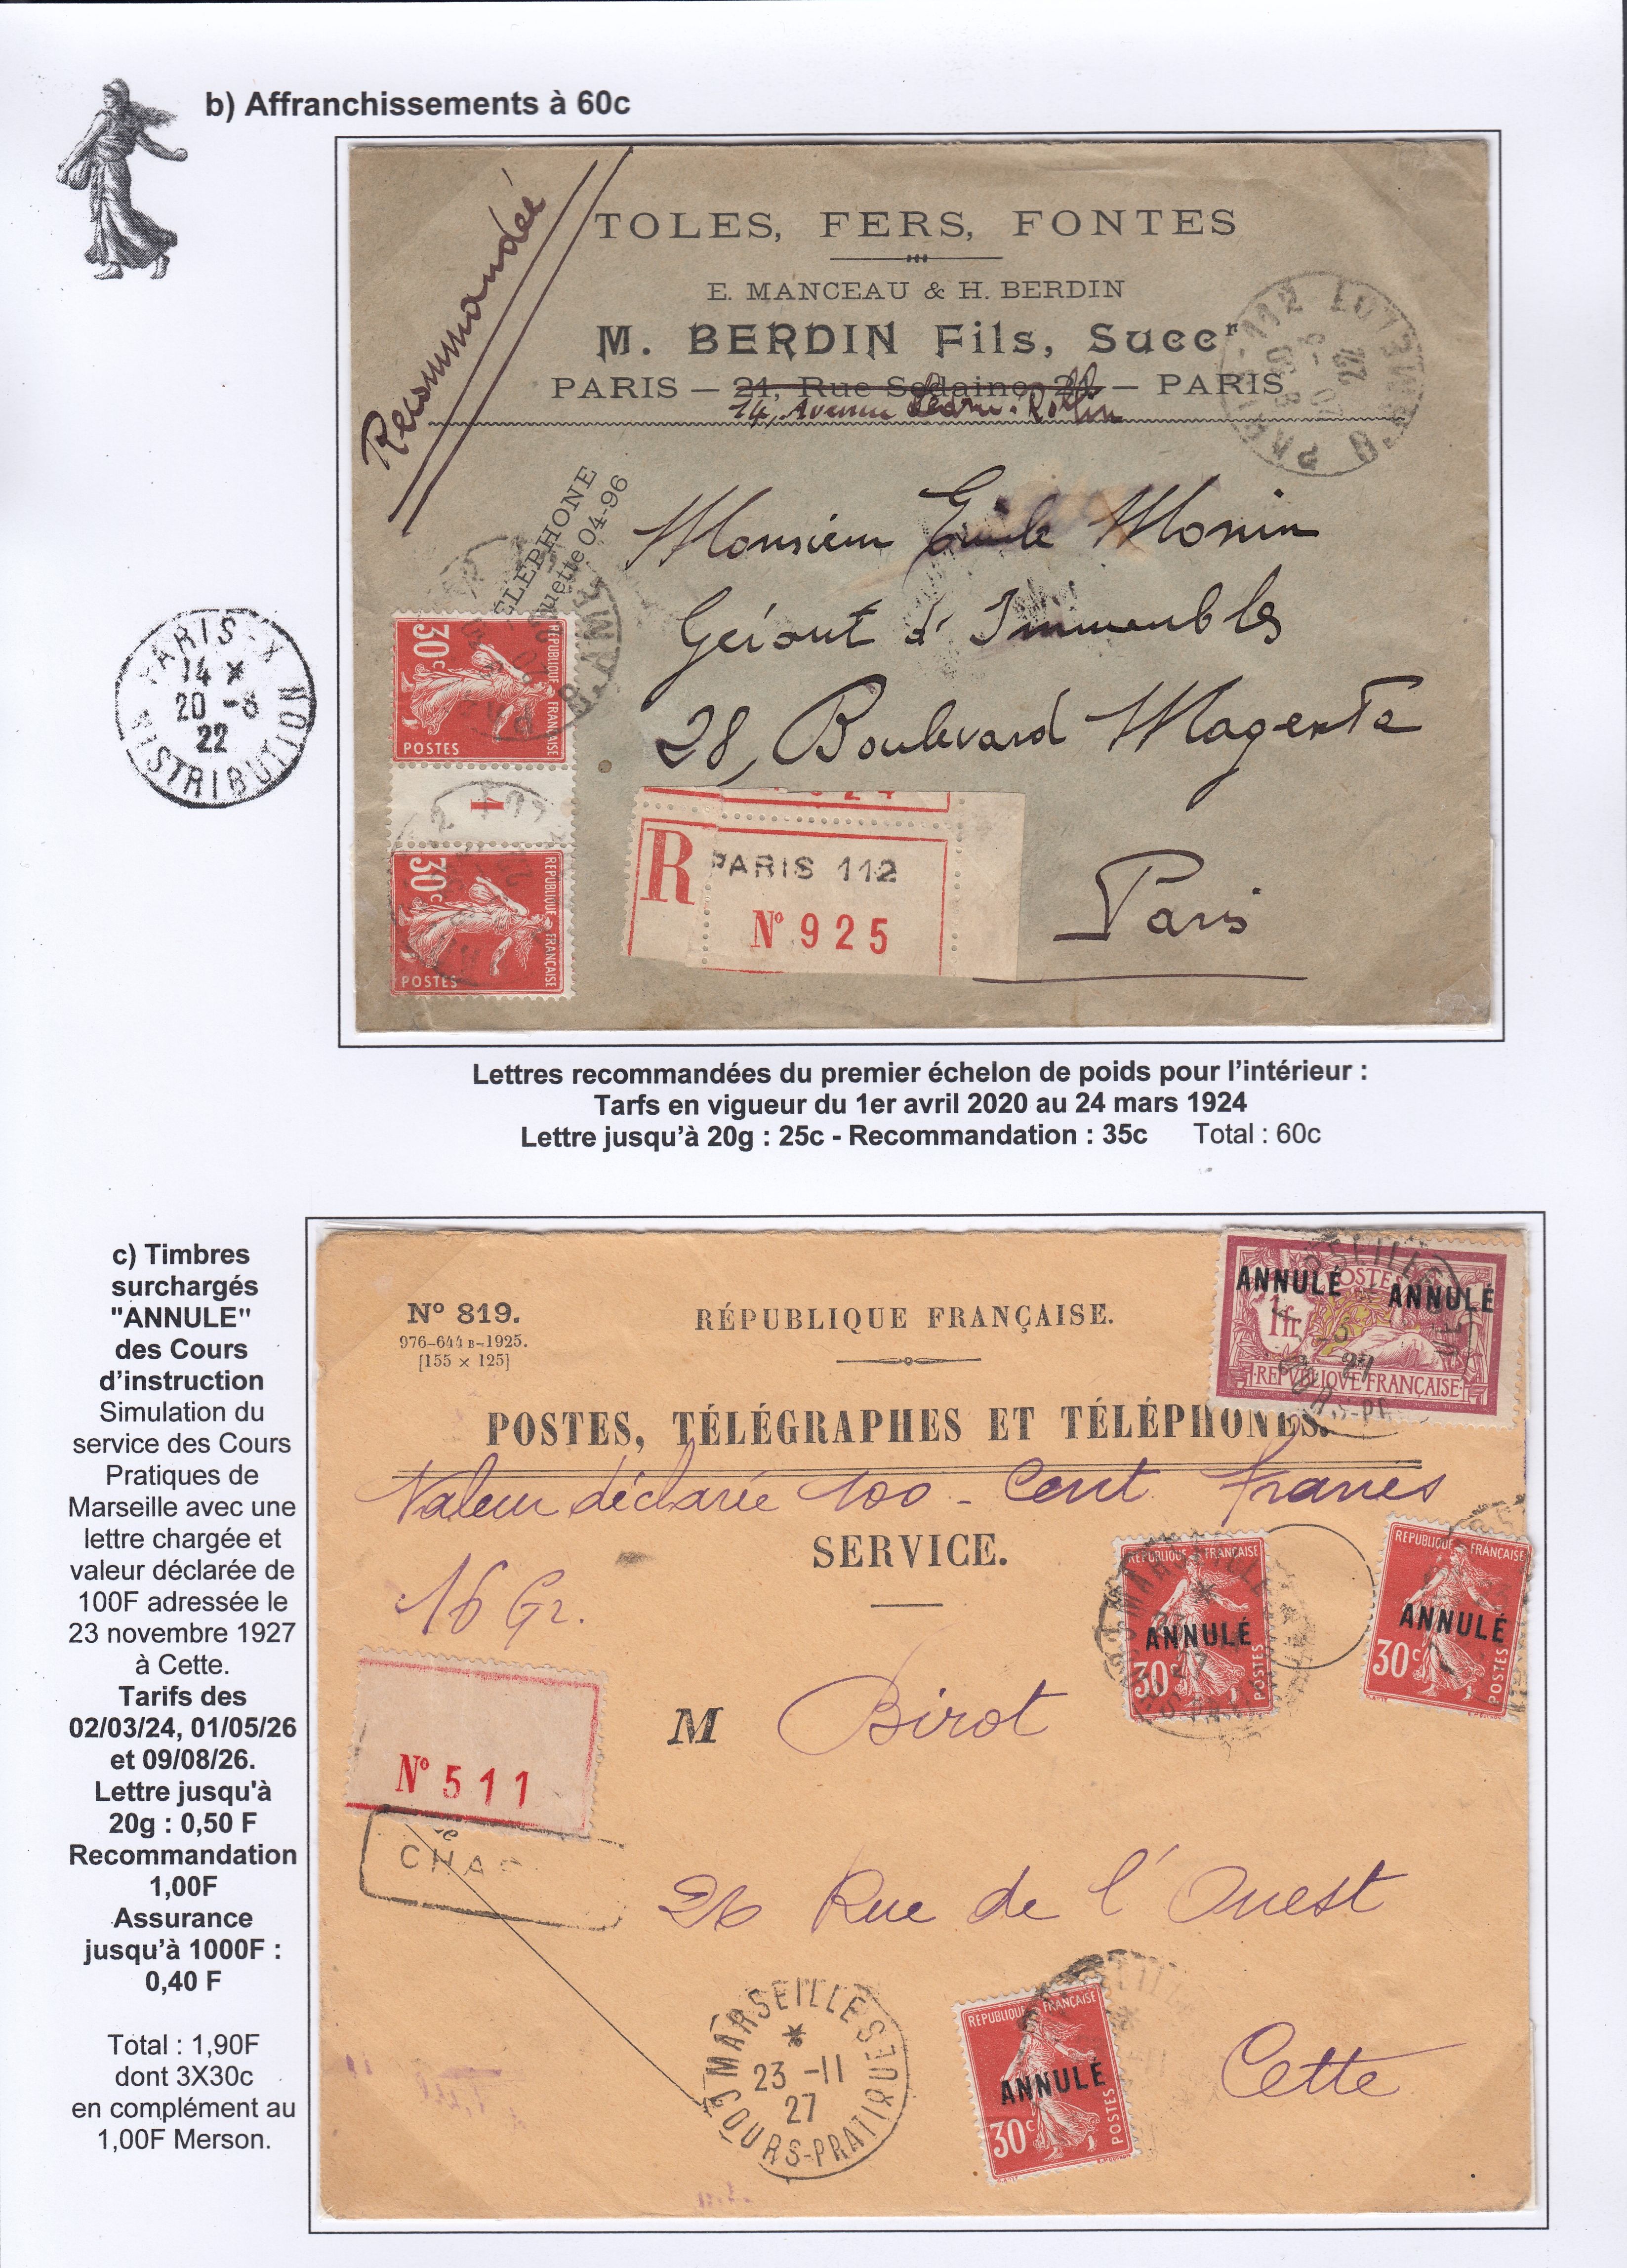 b) Affranchissements à 60c
Recommandée
TOLES, FERS, FONTES
E. MANCEAU & H. BERDIN
M. BERDIN Fils, Succr
PARIS — 21, Rue Sedaine, 21 — PARIS
14, Avenue Ledru-Rollin
TELEPHONE
uette 04-96
Monsieur Emile Monin
Gérant d'Immeubles
28, Boulevard Magenta
Paris
PARIS-X
14 *
20 -8
22
DISTRIBUTION
30c
REPUBLIQUE FRANÇAISE
POSTES
1
30c
REPUBLIQUE FRANÇAISE
POSTES
R PARIS 112
No 925
Lettres recommandées du premier échelon de poids pour l'intérieur :
Tarfs en vigueur du 1er avril 2020 au 24 mars 1924
Lettre jusqu'à 20g : 25c - Recommandation : 35c Total : 60c
c) Timbres
surchargés
"ANNULE"
des Cours
d'instruction
Simulation du
service des Cours
Pratiques de
Marseille avec une
lettre chargée et
valeur déclarée de
100F adressée le
23 novembre 1927
à Cette.
Tarifs des
02/03/24, 01/05/26
et 09/08/26.
Lettre jusqu'à
20g : 0,50 F
Recommandation
1,00F
Assurance
jusqu'à 1000F :
0,40 F
Total : 1,90F
dont 3X30c
en complément au
1,00F Merson.
No 819.
976-644 B-1925.
[155 × 125]
RÉPUBLIQUE FRANÇAISE.
POSTES, TÉLÉGRAPHES ET TÉLÉPHONES.
ANNULÉ ANNULÉ
POSTES
1fr
REPVBLIQVE FRANÇAISE
Valeur déclarée 100 - Cent francs
SERVICE.
16 Gr.
REPUBLIQUE FRANÇAISE
ANNULÉ
30c
POSTES
REPUBLIQUE FRANÇAISE
ANNULÉ
30c
POSTES
No 511
M Birot
CHAR
26 Rue de l'Ouest
Cette
MARSEILLE
*
23 -11
27
COURS-PRATIQUES
REPUBLIQUE FRANÇAISE
ANNULÉ
30c
POSTES